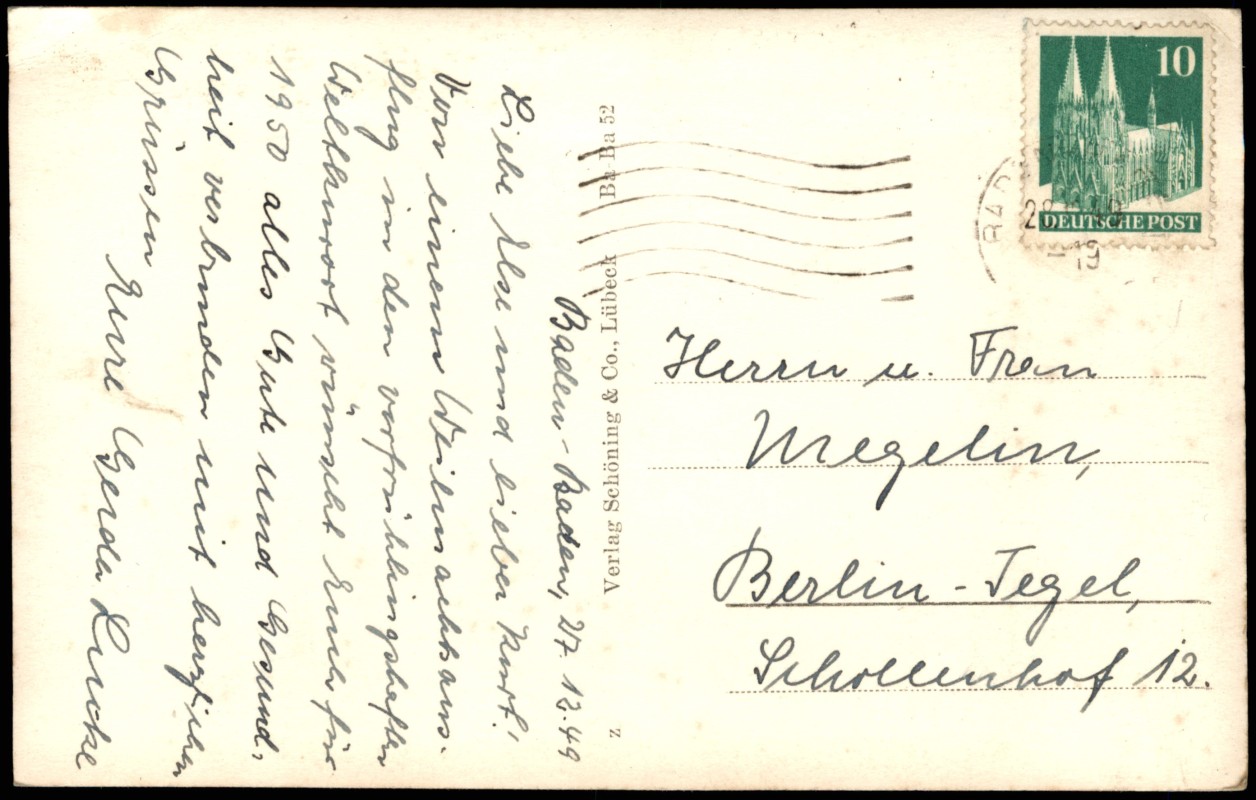 Baden-Baden, 27. 12. 49
Liebe Else und lieber Kurt!
Von einem Weihnachtsaus-
flug in den vorfrühlingshaften
Weltkurort wünscht Euch für
1950 alles Gute und Gesund-
heit verbunden mit herzlichen
Grüssen
Eure Gerda Lucke
Verlag Schöning & Co., Lübeck Ba-Ba 52
z
10
DEUTSCHE POST
28
-19
Herrn u. Frau
Megelin,
Berlin-Tegel,
Schollenhof 12.